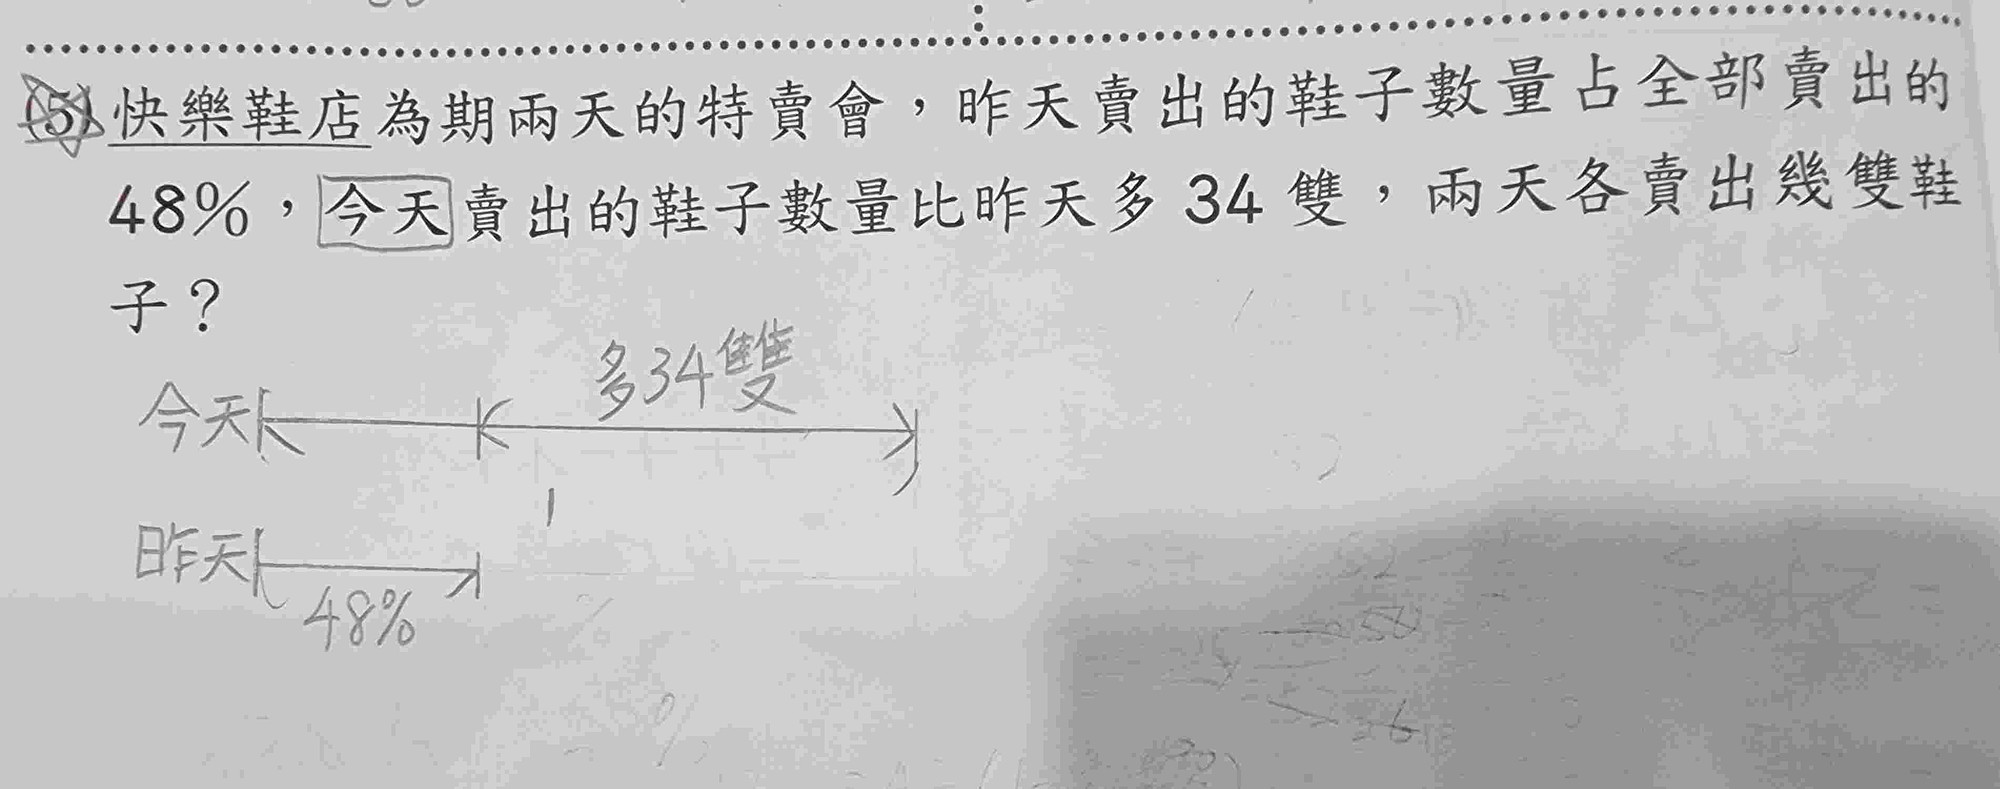 (5) 快樂鞋店為期兩天的特賣會，昨天賣出的鞋子數量占全部賣出的
48%，今天賣出的鞋子數量比昨天多 34 雙，兩天各賣出幾雙鞋
子？
多34雙
今天
昨天
48%